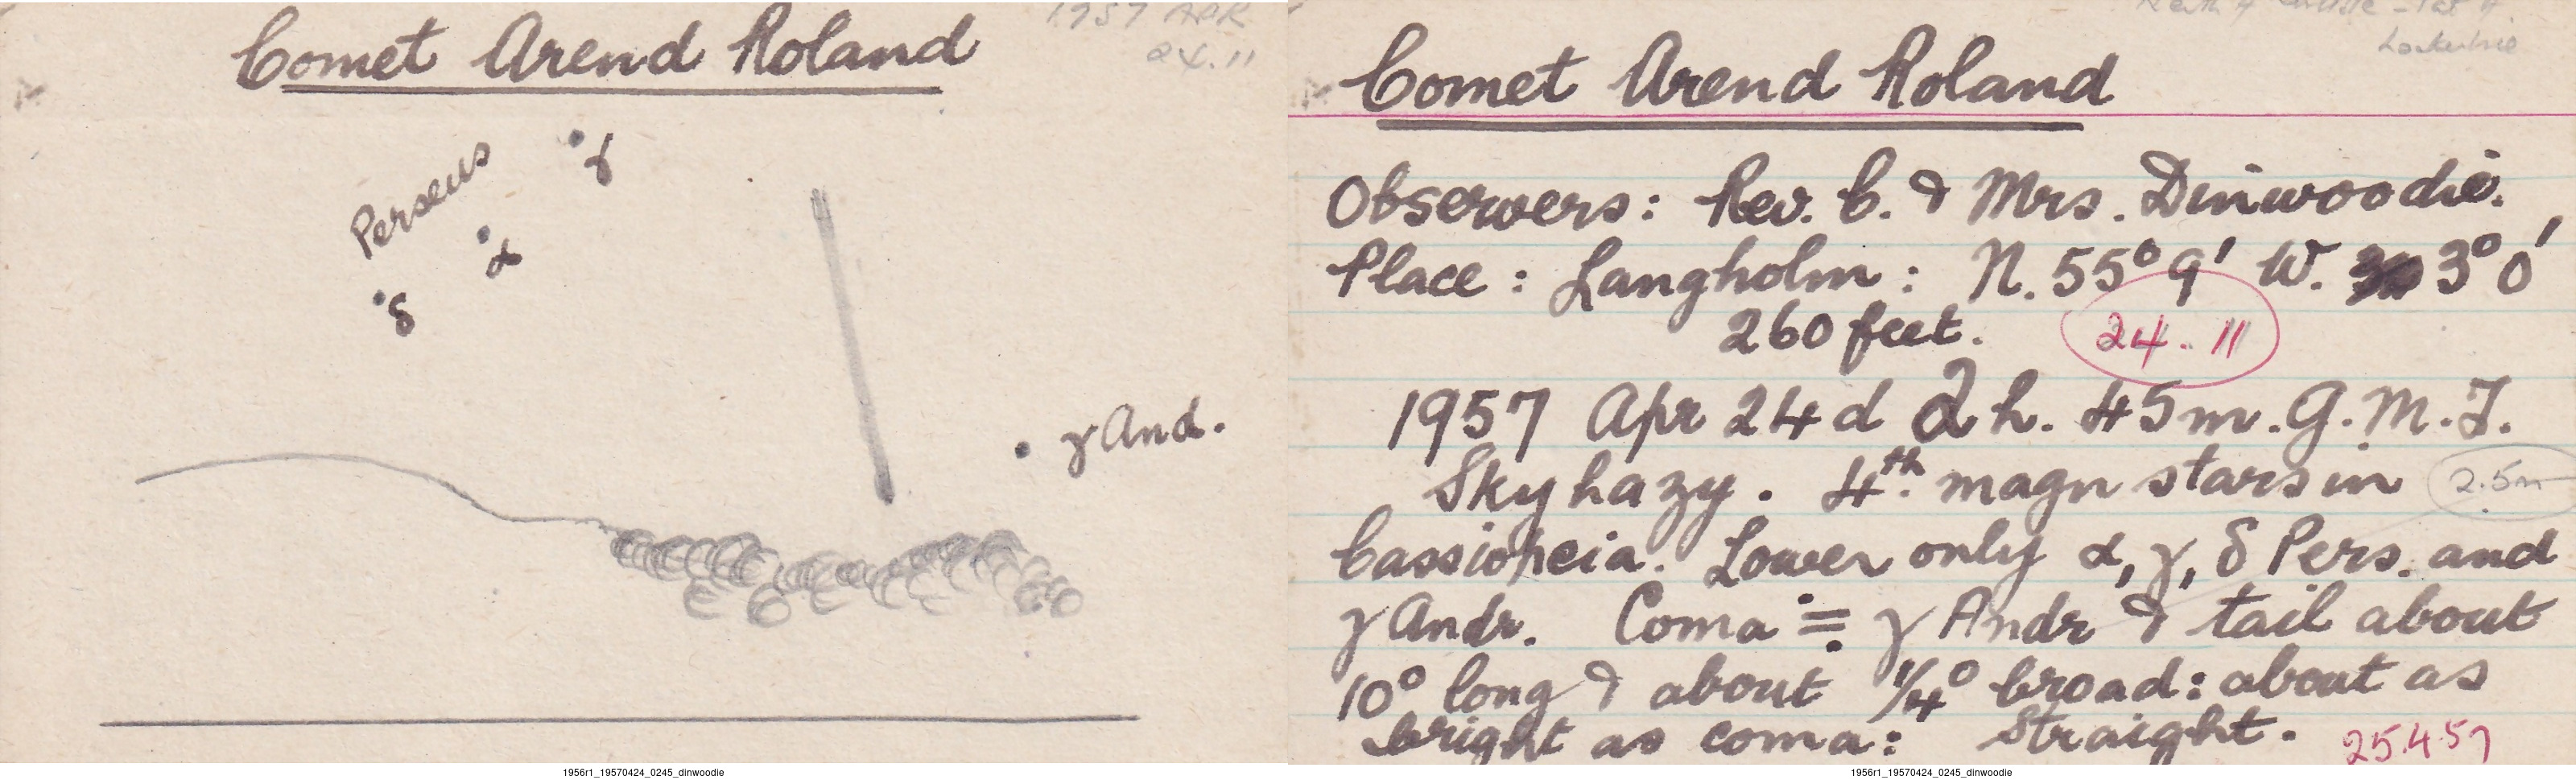 1957 APR
24.11
Comet Arend Roland
Perseus
γ
α
δ
γ And.
1956r1_19570424_0245_dinwoodie
Lockerbie
Comet Arend Roland
Observers: Rev. C. & Mrs. Dinwoodie.
Place: Langholm: N. 55° 9' W. 3° 0'
260 feet.
24.11
1957 Apr 24d 2h. 45m. G.M.T.
Sky hazy. 4th. magn stars in
2.5m
Cassiopeia. Lower only α, γ, δ Pers. and
γ Andr. Coma ≑ γ Andr & tail about
10° long & about 1/4° broad: about as
bright as coma: Straight.
25.4.57
1956r1_19570424_0245_dinwoodie